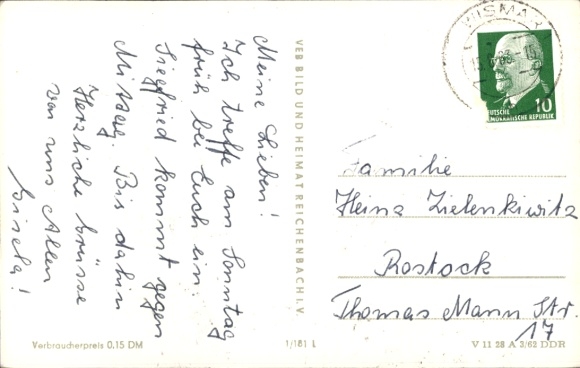 Meine Lieben!
Ich treffe am Sonntag
früh bei Euch ein.
Siegfried kommt gegen
Mittag. Bis dahin
Herzliche Grüsse
von uns Allen
Gisela!
VEB BILD UND HEIMAT REICHENBACH I. V.
WISMAR
10
DEUTSCHE
DEMOKRATISCHE REPUBLIK
Familie
Heinz Zielenkiwitz
Rostock
Thomas Mann Str.
17
Verbraucherpreis 0,15 DM
1/181 L
V 11 28 A 3/62 DDR